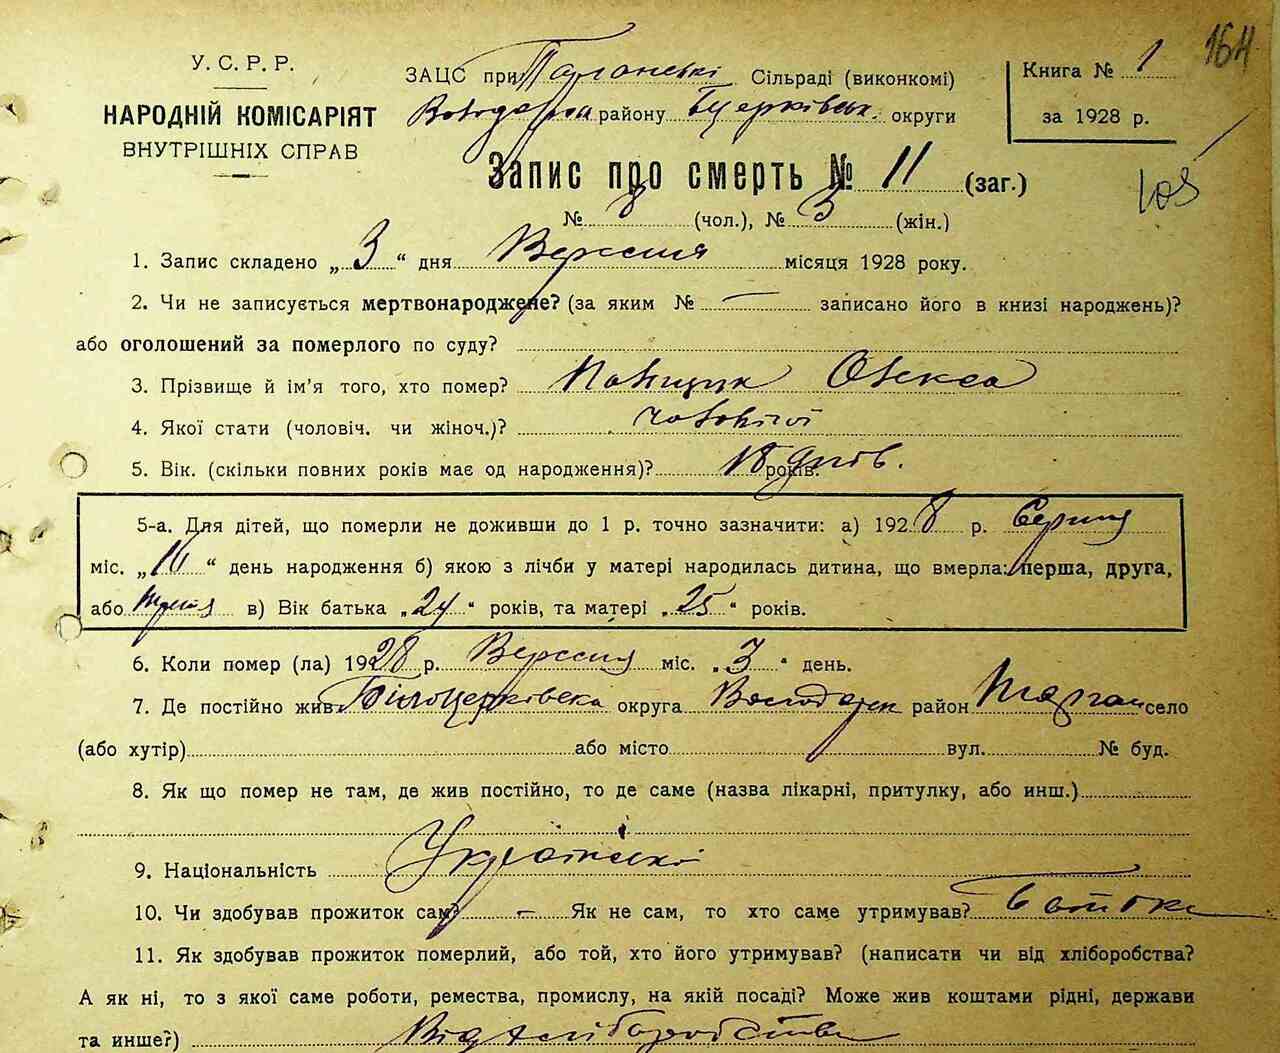 164
У. С. Р. Р.
НАРОДНІЙ КОМІСАРІЯТ
ВНУТРІШНІХ СПРАВ
ЗАЦС при Сільраді (виконкомі)
району Бцерківськ. округи
Книга № 1
за 1928 р.
Запис про смерть № 11 (заг.)
№ 8 (чол.), № 3 (жін.)
1. Запис складено „ 3 “ дня Вересня місяця 1928 року.
2. Чи не записується мертвонароджене? (за яким № — записано його в книзі народжень)?
або оголошений за померлого по суду?
3. Прізвище й ім'я того, хто помер? Олекса
4. Якої стати (чоловіч. чи жіноч.)? чоловічої
5. Вік. (скільки повних років має од народження)? 18 днів. років.
5-а. Для дітей, що померли не доживши до 1 р. точно зазначити: а) 1928 р. Серпня
міс. „ “ день народження б) якою з лічби у матері народилась дитина, що вмерла: перша, друга,
або третя в) Вік батька „24“ років, та матері „25“ років.
6. Коли помер (ла) 1928 р. Вересня міс. „3“ день.
7. Де постійно жив Білоцерківська округа Володарськ район село
(або хутір) або місто вул. № буд.
8. Як що помер не там, де жив постійно, то де саме (назва лікарні, притулку, або инш.)
9. Національність Української
10. Чи здобував прожиток сам? — Як не сам, то хто саме утримував? батько
11. Як здобував прожиток померлий, або той, хто його утримував? (написати чи від хліборобства?
А як ні, то з якої саме роботи, ремества, промислу, на якій посаді? Може жив коштами рідні, держави
та инше?) Від хліборобства